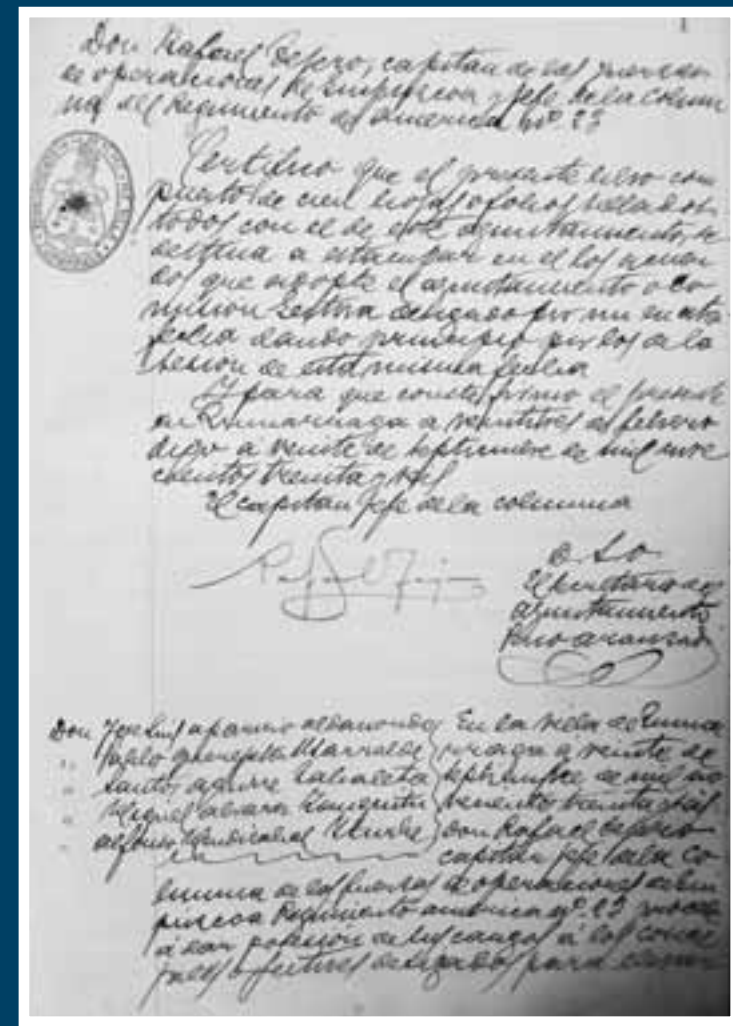 Don Rafael Tejero, capitan de las fuerzas
de operaciones de Guipuzcoa y Jefe de la Colum
na del Regimiento de America nº 23
Certifico que el presente libro com
puesto de cien hojas o folios sellados
todos con el de este ayuntamiento, se
destina a estampar en el los acuer
dos que adopte el ayuntamiento o Co
mision Gestora designado por mi en esta
fecha dando principio por los de la
sesion de esta misma fecha
Y para que conste firmo el presente
en Zumarraga a veintitres de febrero
digo a veinte de septiembre de mil nove
cientos treinta y seis
El capitan Jefe de la columna
El secretario del
ayuntamiento
Don Jose Luis aparicio
En la villa de Zuma
Pablo
rraga a veinte de
Santos aguirre Zabaleta
septiembre de mil no
Miguel alvarez
vecientos treinta y seis
alfonso
don Rafael Tejero
capitan Jefe de la Co
lumna de las fuerzas de operaciones de Gui
puzcoa Regimiento america nº 23 procede
a dar posesion de sus cargos a los conce
jales gestores designados para